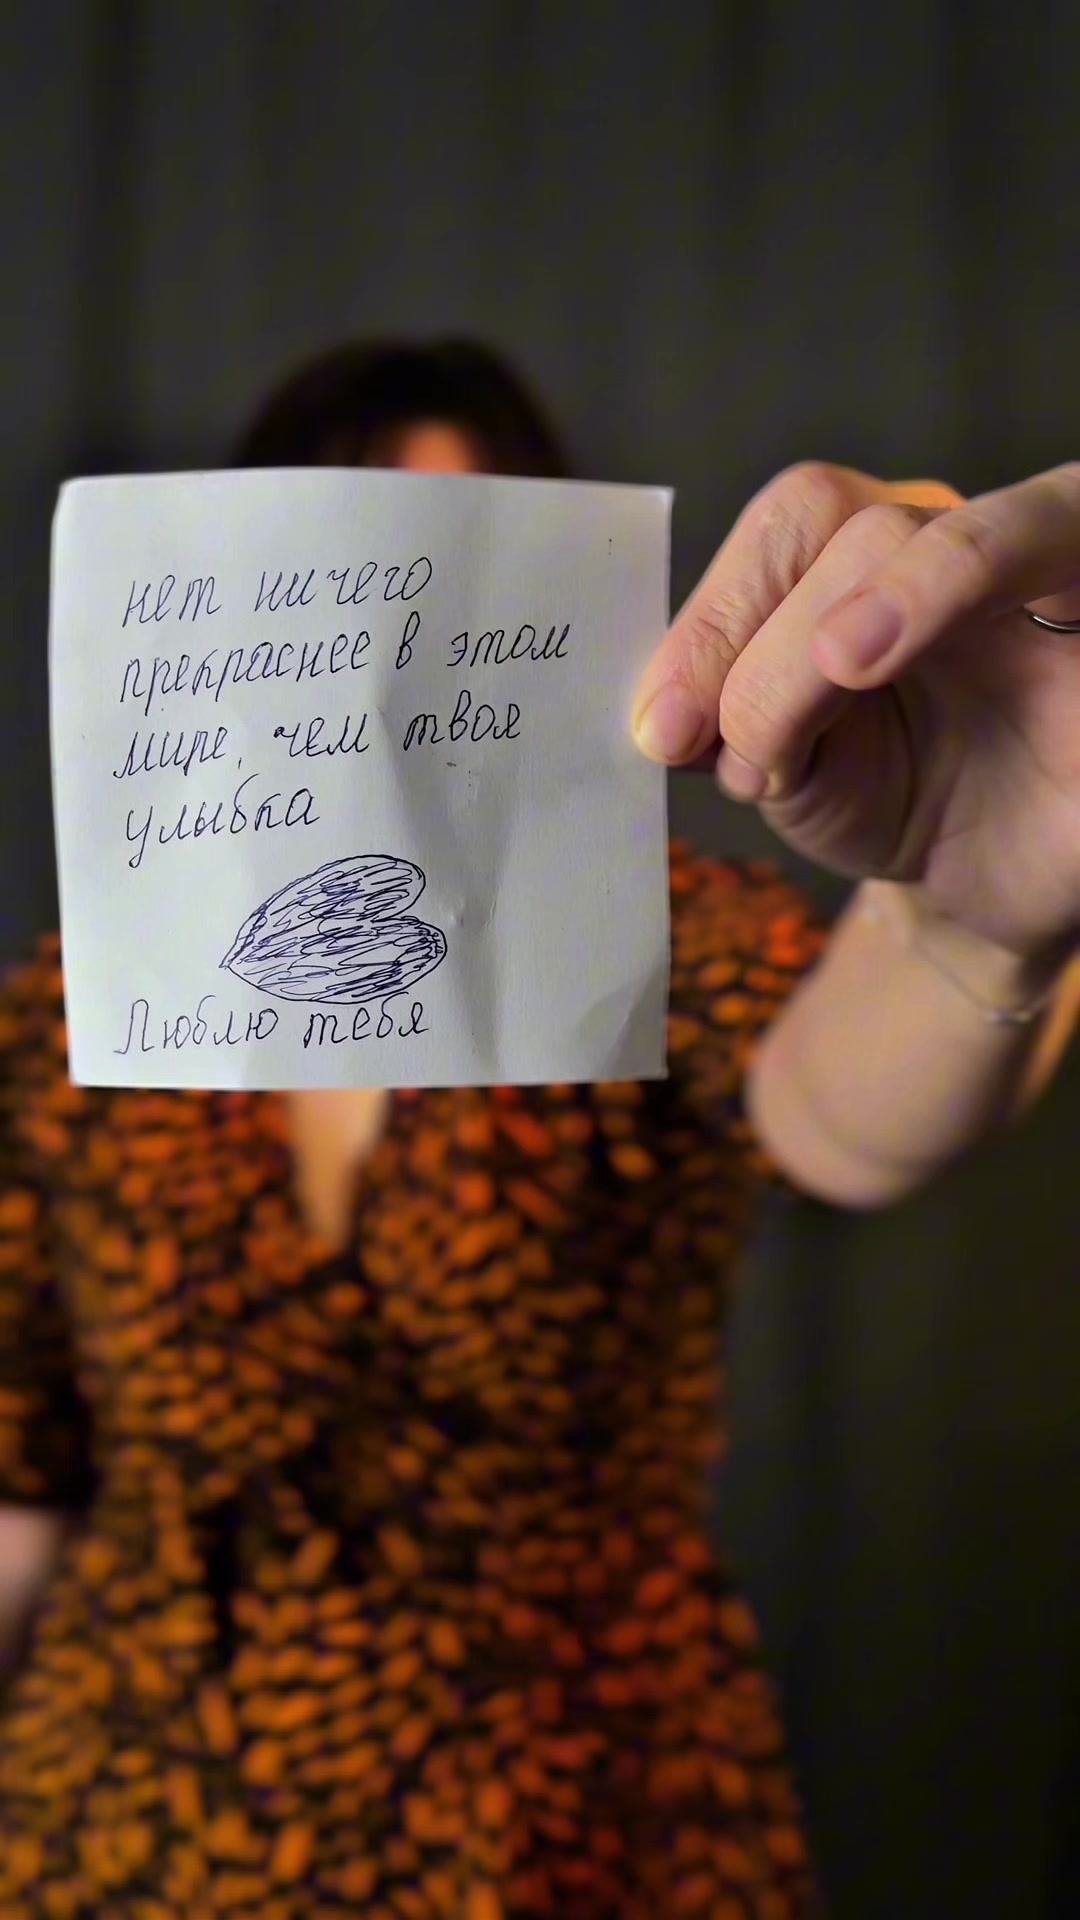 нет ничего
прекраснее в этом
мире, чем твоя
улыбка
Люблю тебя